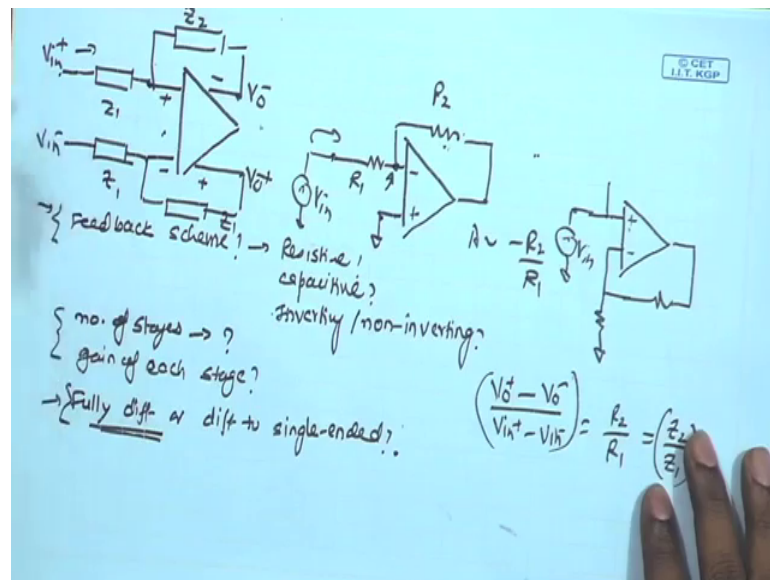 Z2
Vin+ →
Z1
+
-
V0-
Vin-
Z1
-
+
V0+
Z1
© CET
I.I.T. KGP
R2
R1
Vin
-
+
A ~ -R2/R1
Vin
+
-
→ { Feedback scheme? → Resistive!
capacitive?
Inverting / non-inverting?
{ no. of stages → ?
gain of each stage?
→ { Fully diff or diff to single-ended?
(V0+ - V0- / Vin+ - Vin-) = R2/R1 = (Z2/Z1)